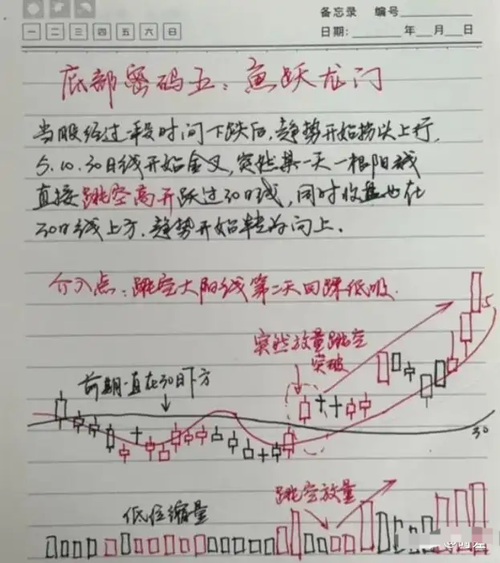 备忘录 编号
一 二 三 四 五 六 日
日期: 年 月 日
底部密码五:鱼跃龙门
当股经过一段时间下跌后,趋势开始拐头上行,
5.10.30日线开始金叉,突然某一天一根阳线
直接跳空高开跃过30日线,同时收盘也在
30日线上方.趋势开始转为向上.
介入点:跳空大阳线第二天回踩低吸.
突然放量跳空
突破
5
前期一直在30日下方
30
跳空放量
低位缩量